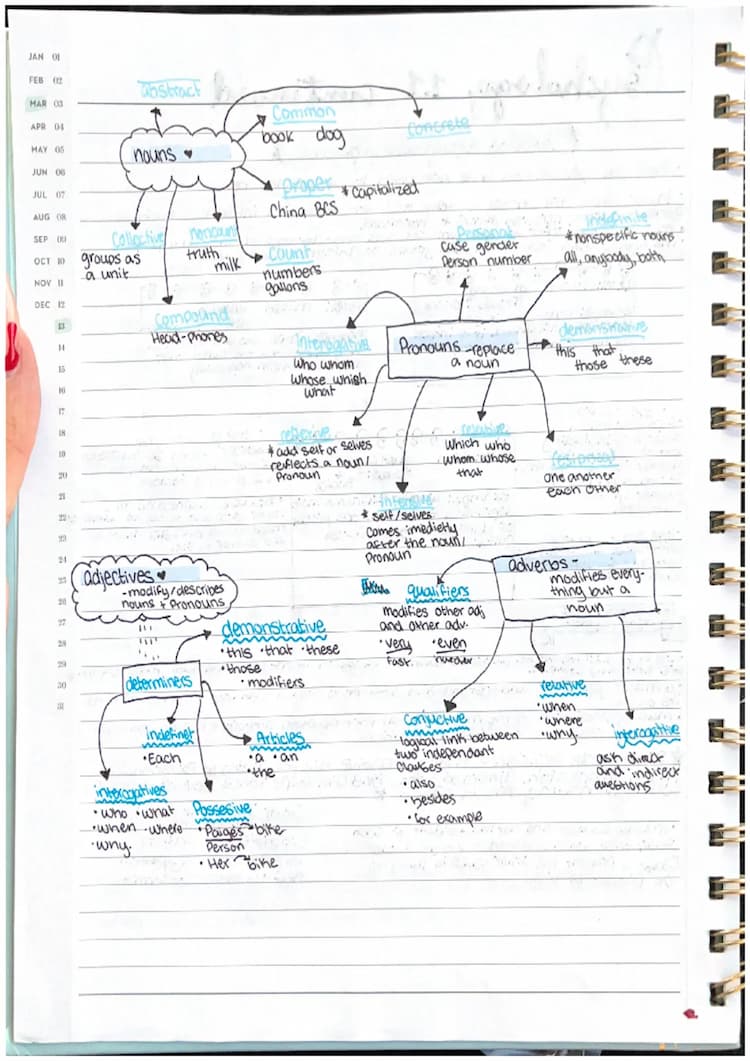 JAN 01
FEB 02
MAR 03
APR 04
MAY 05
JUN 06
JUL 07
AUG 08
SEP 09
OCT 10
NOV 11
DEC 12
13
14
15
16
17
18
19
20
21
22
23
24
25
26
27
28
29
30
31
nouns
abstract
Common
book dog
Concrete
Proper * Capitalized
China BCS
Collective
groups as
a unit
truth
milk
Count
numbers
gallons
Compound
Head-phones
Pronouns -replace
a noun
Personal
case gender
Person number
Indefinite
*nonspecific nouns
all, anybody, both
demonstrative
this that
those these
Interogative
who whom
whose which
what
reflexive
* add self or selves
reflects a noun/
pronoun
relative
which who
whom whose
that
one another
each other
Intensive
* self/selves
comes imedietly
after the noun/
Pronoun
adjectives
-modify/describes
nouns + Pronouns
determiners
demonstrative
•this •that •these
•those
•modifiers
indefinet
•Each
Articles
•a •an
•the
interogatives
•who •what
•when •where
•why.
Possesive
•Paiges bike
Person
•Her bike
adverbs -
modifies every-
thing but a
noun
qualifiers
modifies other adj
and other adv.
•very •even
fast. harder
Conjuctive
logical link between
two independant
clauses
•also
•besides
•for example
relative
•when
•where
•why.
interogative
ask direct
and indirect
questions